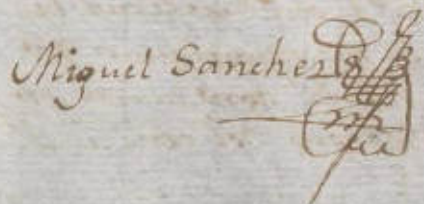 Miguel Sanchez